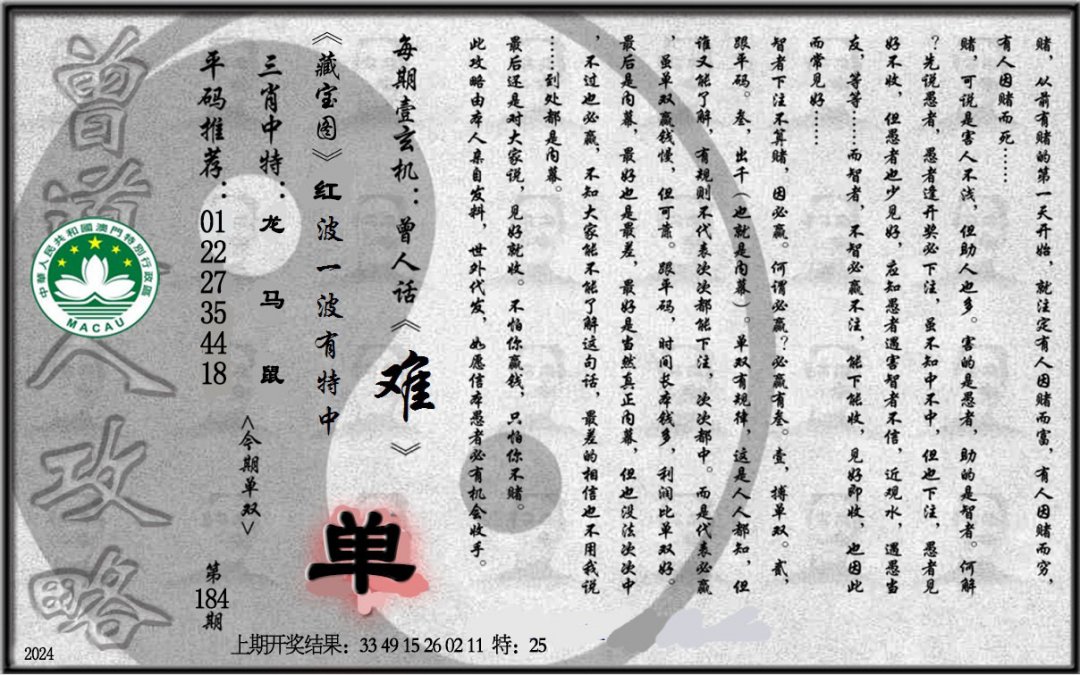 赌，从前有赌的第一天开始，就注定有人因赌而富，有人因赌而穷，
有人因赌而死……
赌，可说是害人不浅，但助人也多。害的是愚者，助的是智者。何解
？先说愚者，愚者逢开奖必下注，虽不知中不中，但也下注，愚者见
好不收，但愚者也少见好，应知愚者遇害智者不信，近观水，遇愚当
友，等等……而智者，不智必赢不注，能下能收，见好即收，也因此
而常见好……
智者下注不算赌，因必赢。何谓必赢？必赢有叁。壹，搏单双。贰，
跟平码。叁，出千（也就是内幕）。单双有规律，这是人人都知，但
谁又能了解，有规则不代表次次都能下注，次次都中。而是代表必赢
，虽单双赢钱慢，但可靠。跟平码，时间长本钱多，利润比单双好。
最后是内幕，最好也是最差，最好是当然真正内幕，但也没法次次中
，不过也必赢，不知大家能不能了解这句话，最差的相信也不用我说
……到处都是内幕。
最后还是对大家说，见好就收。不怕你赢钱，只怕你不赌。
此攻略由本人亲自发料，世外代发，如愿信本愚者必有机会收手。
每期壹玄机：曾人话《难》
《藏宝图》红波一波有特中
单
三肖中特：龙 马 鼠
<今期单双>
平码推荐：01 22 27 35 44 18
第184期
曾道人攻略
中華人民共和國澳門特別行政區
MACAU
2024
上期开奖结果：33 49 15 26 02 11 特：25